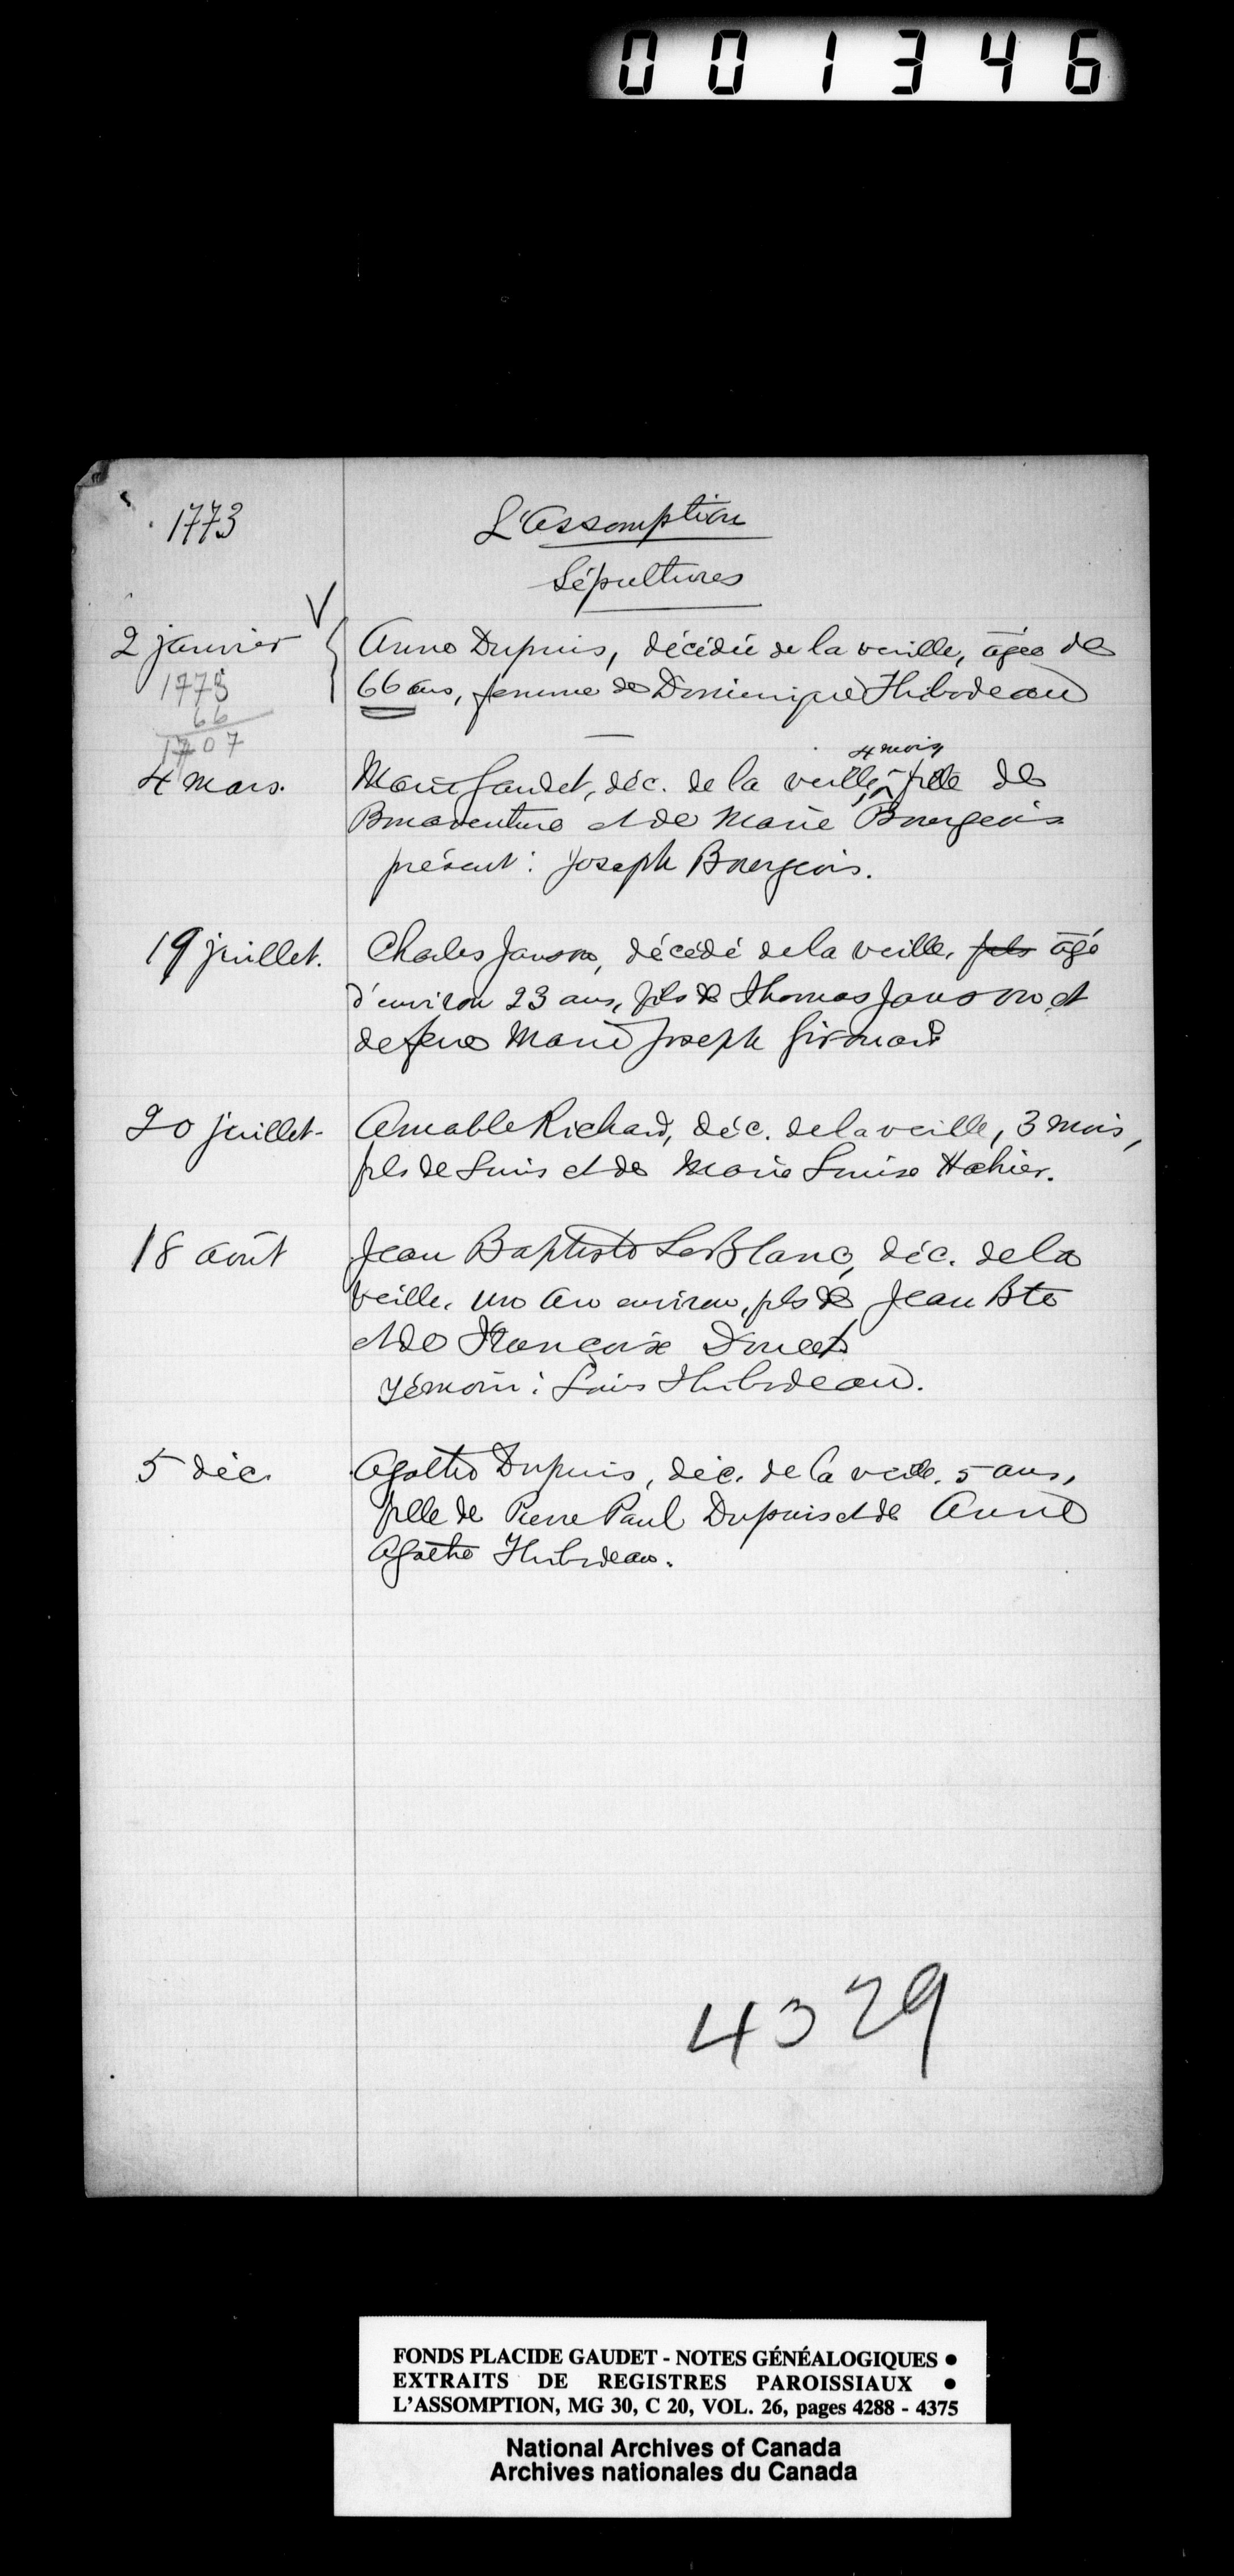 001346
1773
L'Assomption
Sépultures
2 janvier
Anne Dupuis, décédée de la veille, âgée de
1773
66 ans, femme de Dominique Thibodeau
66
1707
4 mois
4 mars.
Marie Gaudet, déc. de la veille, fille de
Bonaventure et de Marie Bourgeois
présent : Joseph Bourgeois.
19 juillet.
Charles Janson, décédé de la veille, fils âgé
d'environ 23 ans, fils de Thomas Janson et
de feue Marie Joseph Girouard
20 juillet-
Amable Richard, déc. de la veille, 3 mois,
fils de Louis et de Marie Louise Hahier.
18 août
Jean Baptiste LeBlanc, déc. de la
veille, un an environ, fils de Jean Bte
et de Françoise Doucet
Témoin : Louis Thibodeau.
5 déc.
Agathe Dupuis, déc. de la veille, 5 ans,
fille de Pierre Paul Dupuis et de Anne
Agathe Thibodeau.
4329
FONDS PLACIDE GAUDET - NOTES GÉNÉALOGIQUES •
EXTRAITS DE REGISTRES PAROISSIAUX •
L'ASSOMPTION, MG 30, C 20, VOL. 26, pages 4288 - 4375
National Archives of Canada
Archives nationales du Canada